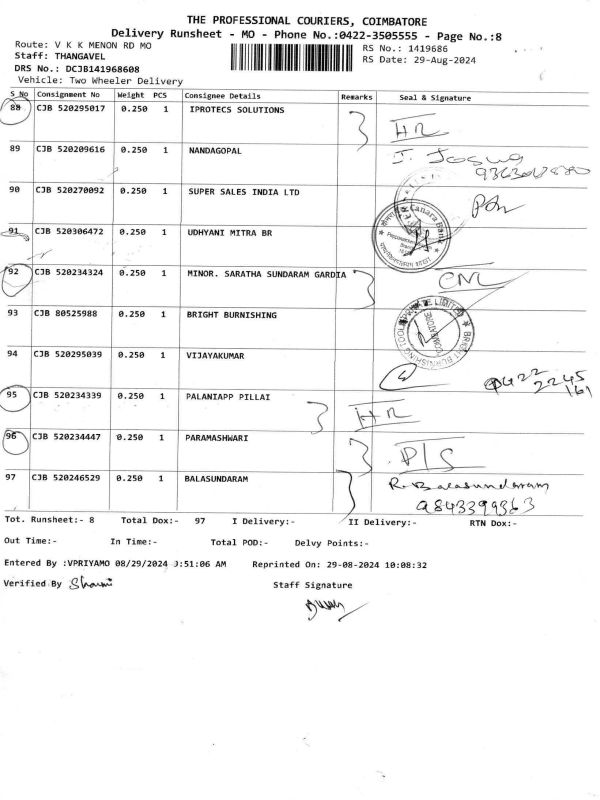 THE PROFESSIONAL COURIERS, COIMBATORE
Delivery Runsheet - MO - Phone No.:0422-3505555 - Page No.:8
Route: V K K MENON RD MO
RS No.: 1419686
Staff: THANGAVEL
RS Date: 29-Aug-2024
DRS No.: DCJB141968608
Vehicle: Two Wheeler Delivery
S_No Consignment No Weight PCS Consignee Details Remarks Seal & Signature
88 CJB 520295017 0.250 1 IPROTECS SOLUTIONS HR
89 CJB 520209616 0.250 1 NANDAGOPAL
90 CJB 520270092 0.250 1 SUPER SALES INDIA LTD
91 CJB 520306472 0.250 1 UDHYANI MITRA BR Canara Bank
92 CJB 520234324 0.250 1 MINOR. SARATHA SUNDARAM GARDIA CNL
93 CJB 80525988 0.250 1 BRIGHT BURNISHING
COIMBATORE
94 CJB 520295039 0.250 1 VIJAYAKUMAR
0422
2245
161
95 CJB 520234339 0.250 1 PALANIAPP PILLAI HR
96 CJB 520234447 0.250 1 PARAMASHWARI D/S
97 CJB 520246529 0.250 1 BALASUNDARAM R. Balasundaram
9843399363
Tot. Runsheet:- 8 Total Dox:- 97 I Delivery:- II Delivery:- RTN Dox:-
Out Time:- In Time:- Total POD:- Delvy Points:-
Entered By :VPRIYAMO 08/29/2024 :51:06 AM Reprinted On: 29-08-2024 10:08:32
Verified By
Staff Signature